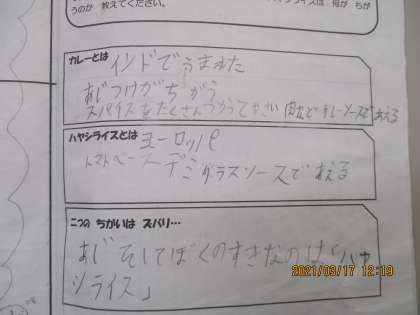 うのか 教えてください。
カレーとは
インドでうまれた
あじつけがちがう
スパイスをたくさんつかってやさい 肉などカレーソースであえる
ハヤシライスとは
ヨーロッパ
トマトベース デミグラスソースで あえる
二つの ちがいは ズバリ…
あじ そしてぼくのすきなのは「ハヤ
シライス」
2021/09/17 12:19